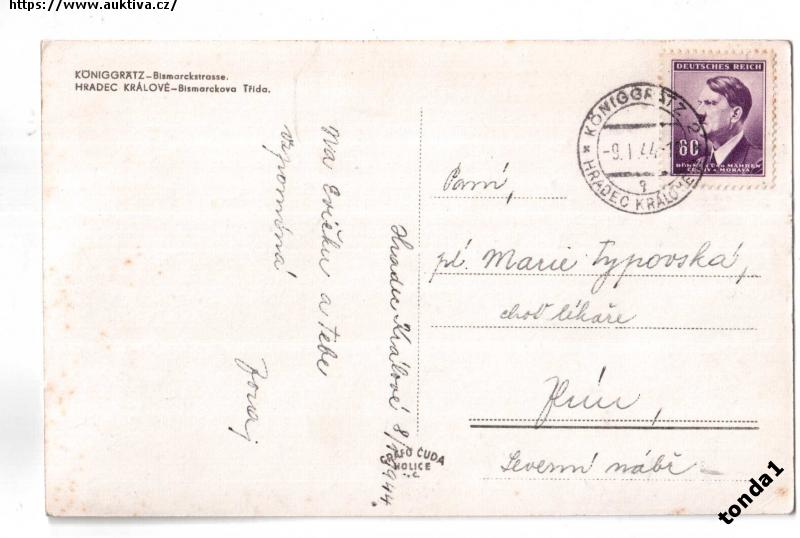 https://www.auktiva.cz/
KÖNIGGRÄTZ—Bismarckstrasse.
HRADEC KRÁLOVÉ—Bismarckova Třída.
DEUTSCHES REICH
60
BÖHMEN UND MÄHREN
ČECHY A MORAVA
KÖNIGGRÄTZ 2
-9.I.44-
HRADEC KRÁLOVÉ
Hradec Králové 8/1 1944.
Na Evičku a Tebe
vzpomíná
Paní,
pí. Marie Typovská,
choť lékaře
Jičín,
Severní nábř
GRAFO ČUDA
HOLICE
tonda1